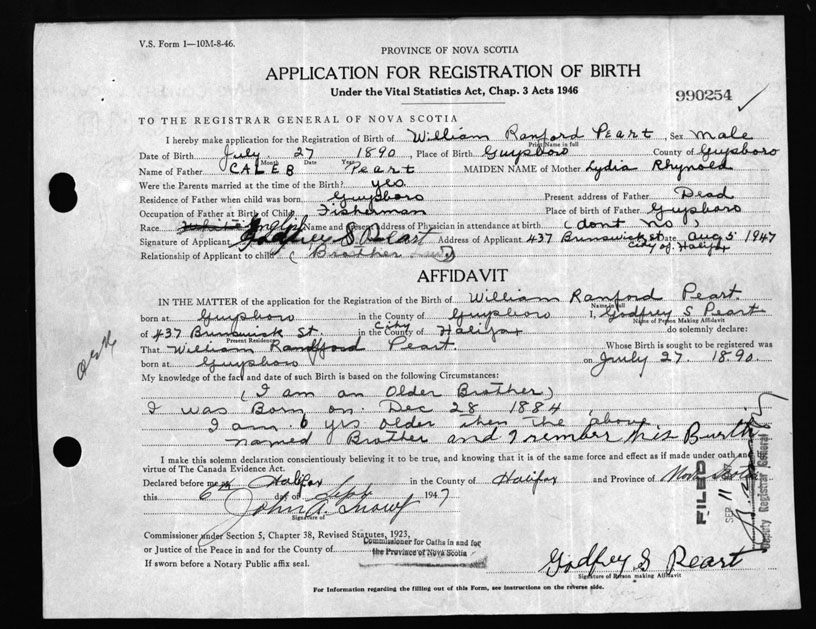 V.S. Form 1—10M-8-46.
PROVINCE OF NOVA SCOTIA
APPLICATION FOR REGISTRATION OF BIRTH
Under the Vital Statistics Act, Chap. 3 Acts 1946
990254
TO THE REGISTRAR GENERAL OF NOVA SCOTIA
I hereby make application for the Registration of Birth of William Ranford Peart, Sex Male
Print Name in full
Date of Birth July 27 1890, Place of Birth Guysboro County of Guysboro
Month Date Year
Name of Father CALEB Peart MAIDEN NAME of Mother Lydia Rhynold
Were the Parents married at the time of the Birth? yes
Residence of Father when child was born Guysboro Present address of Father Dead
Occupation of Father at Birth of Child Fisherman Place of birth of Father Guysboro
Race White Name and Present address of Physician in attendance at birth (dont no)
Signature of Applicant Godfrey S Peart Address of Applicant 437 Brunswick st Date Aug 5 1947
City of Halifax
Relationship of Applicant to child (Brother)
AFFIDAVIT
IN THE MATTER of the application for the Registration of the Birth of William Ranford Peart.
Name in full
born at Guysboro in the County of Guysboro I, Godfrey S Peart
Name of Person Making Affidavit
of 437 Brunswick St. in the County of City Halifax do solemnly declare:
Present Residence
That William Randford Peart. Whose Birth is sought to be registered was
born at Guysboro on July 27. 1890.
My knowledge of the fact and date of such Birth is based on the following Circumstances:
(I am an Older Brother)
I was Born on Dec 28 1884
I am 6 yrs older then the above
named Brother and I rember his Burth
I make this solemn declaration conscientiously believing it to be true, and knowing that it is of the same force and effect as if made under oath and
virtue of The Canada Evidence Act.
Declared before me at Halifax in the County of Halifax and Province of Nova Scotia
this 6th day of Sept 1947
Signature of
Commissioner under Section 5, Chapter 38, Revised Statutes, 1923,
or Justice of the Peace in and for the County of
Commissioner for Oaths in and for
the Province of Nova Scotia
If sworn before a Notary Public affix seal.
Godfrey S Peart
Signature of Person making Affidavit
For Information regarding the filling out of this Form, see instructions on the reverse side.
FILED
SEP 11
Deputy Registrar General